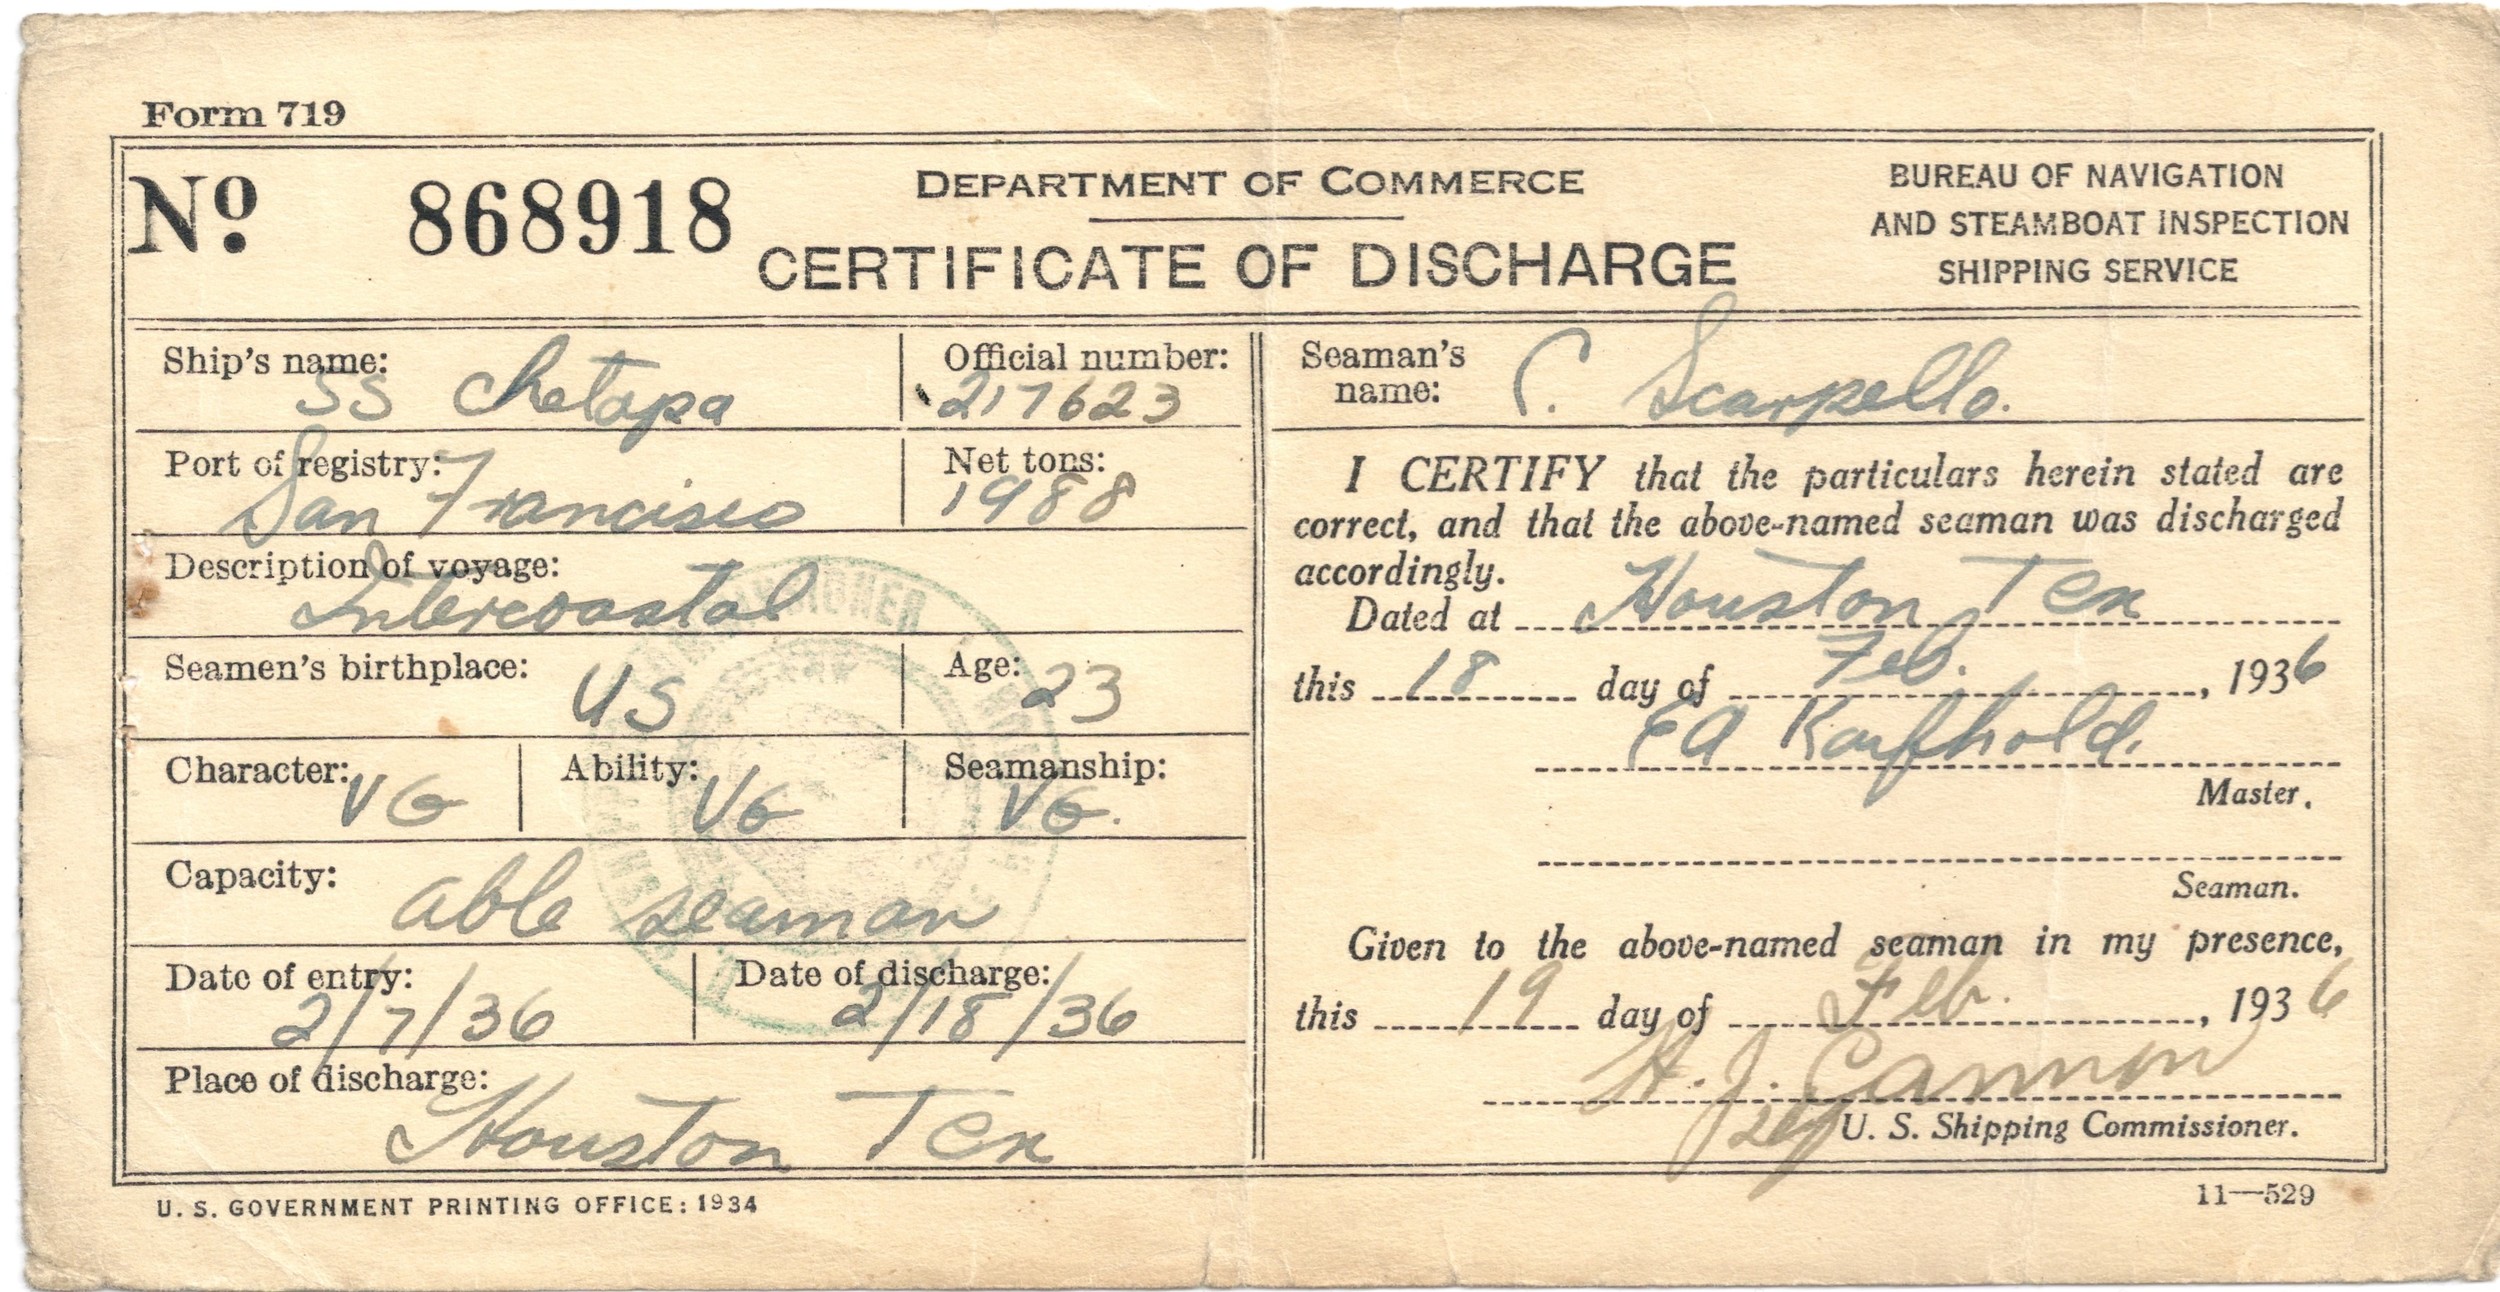 Form 719
Nº 868918
DEPARTMENT OF COMMERCE
CERTIFICATE OF DISCHARGE
BUREAU OF NAVIGATION
AND STEAMBOAT INSPECTION
SHIPPING SERVICE
Ship's name: SS Chetopa
Official number: 217623
Port of registry: San Francisco
Net tons: 1988
Description of voyage: Intercoastal
Seamen's birthplace: US
Age: 23
Character: VG
Ability: VG
Seamanship: VG.
Capacity: able seaman
Date of entry: 2/7/36
Date of discharge: 2/18/36
Place of discharge: Houston Tex
Seaman's name: C. Scarpello.
I CERTIFY that the particulars herein stated are
correct, and that the above-named seaman was discharged
accordingly.
Dated at Houston Tex
this 18 day of Feb., 1936
EA Kaufhold.
Master.
Seaman.
Given to the above-named seaman in my presence,
this 19 day of Feb., 1936
H. J. Cannon
U. S. Shipping Commissioner.
U. S. GOVERNMENT PRINTING OFFICE: 1934
11—529